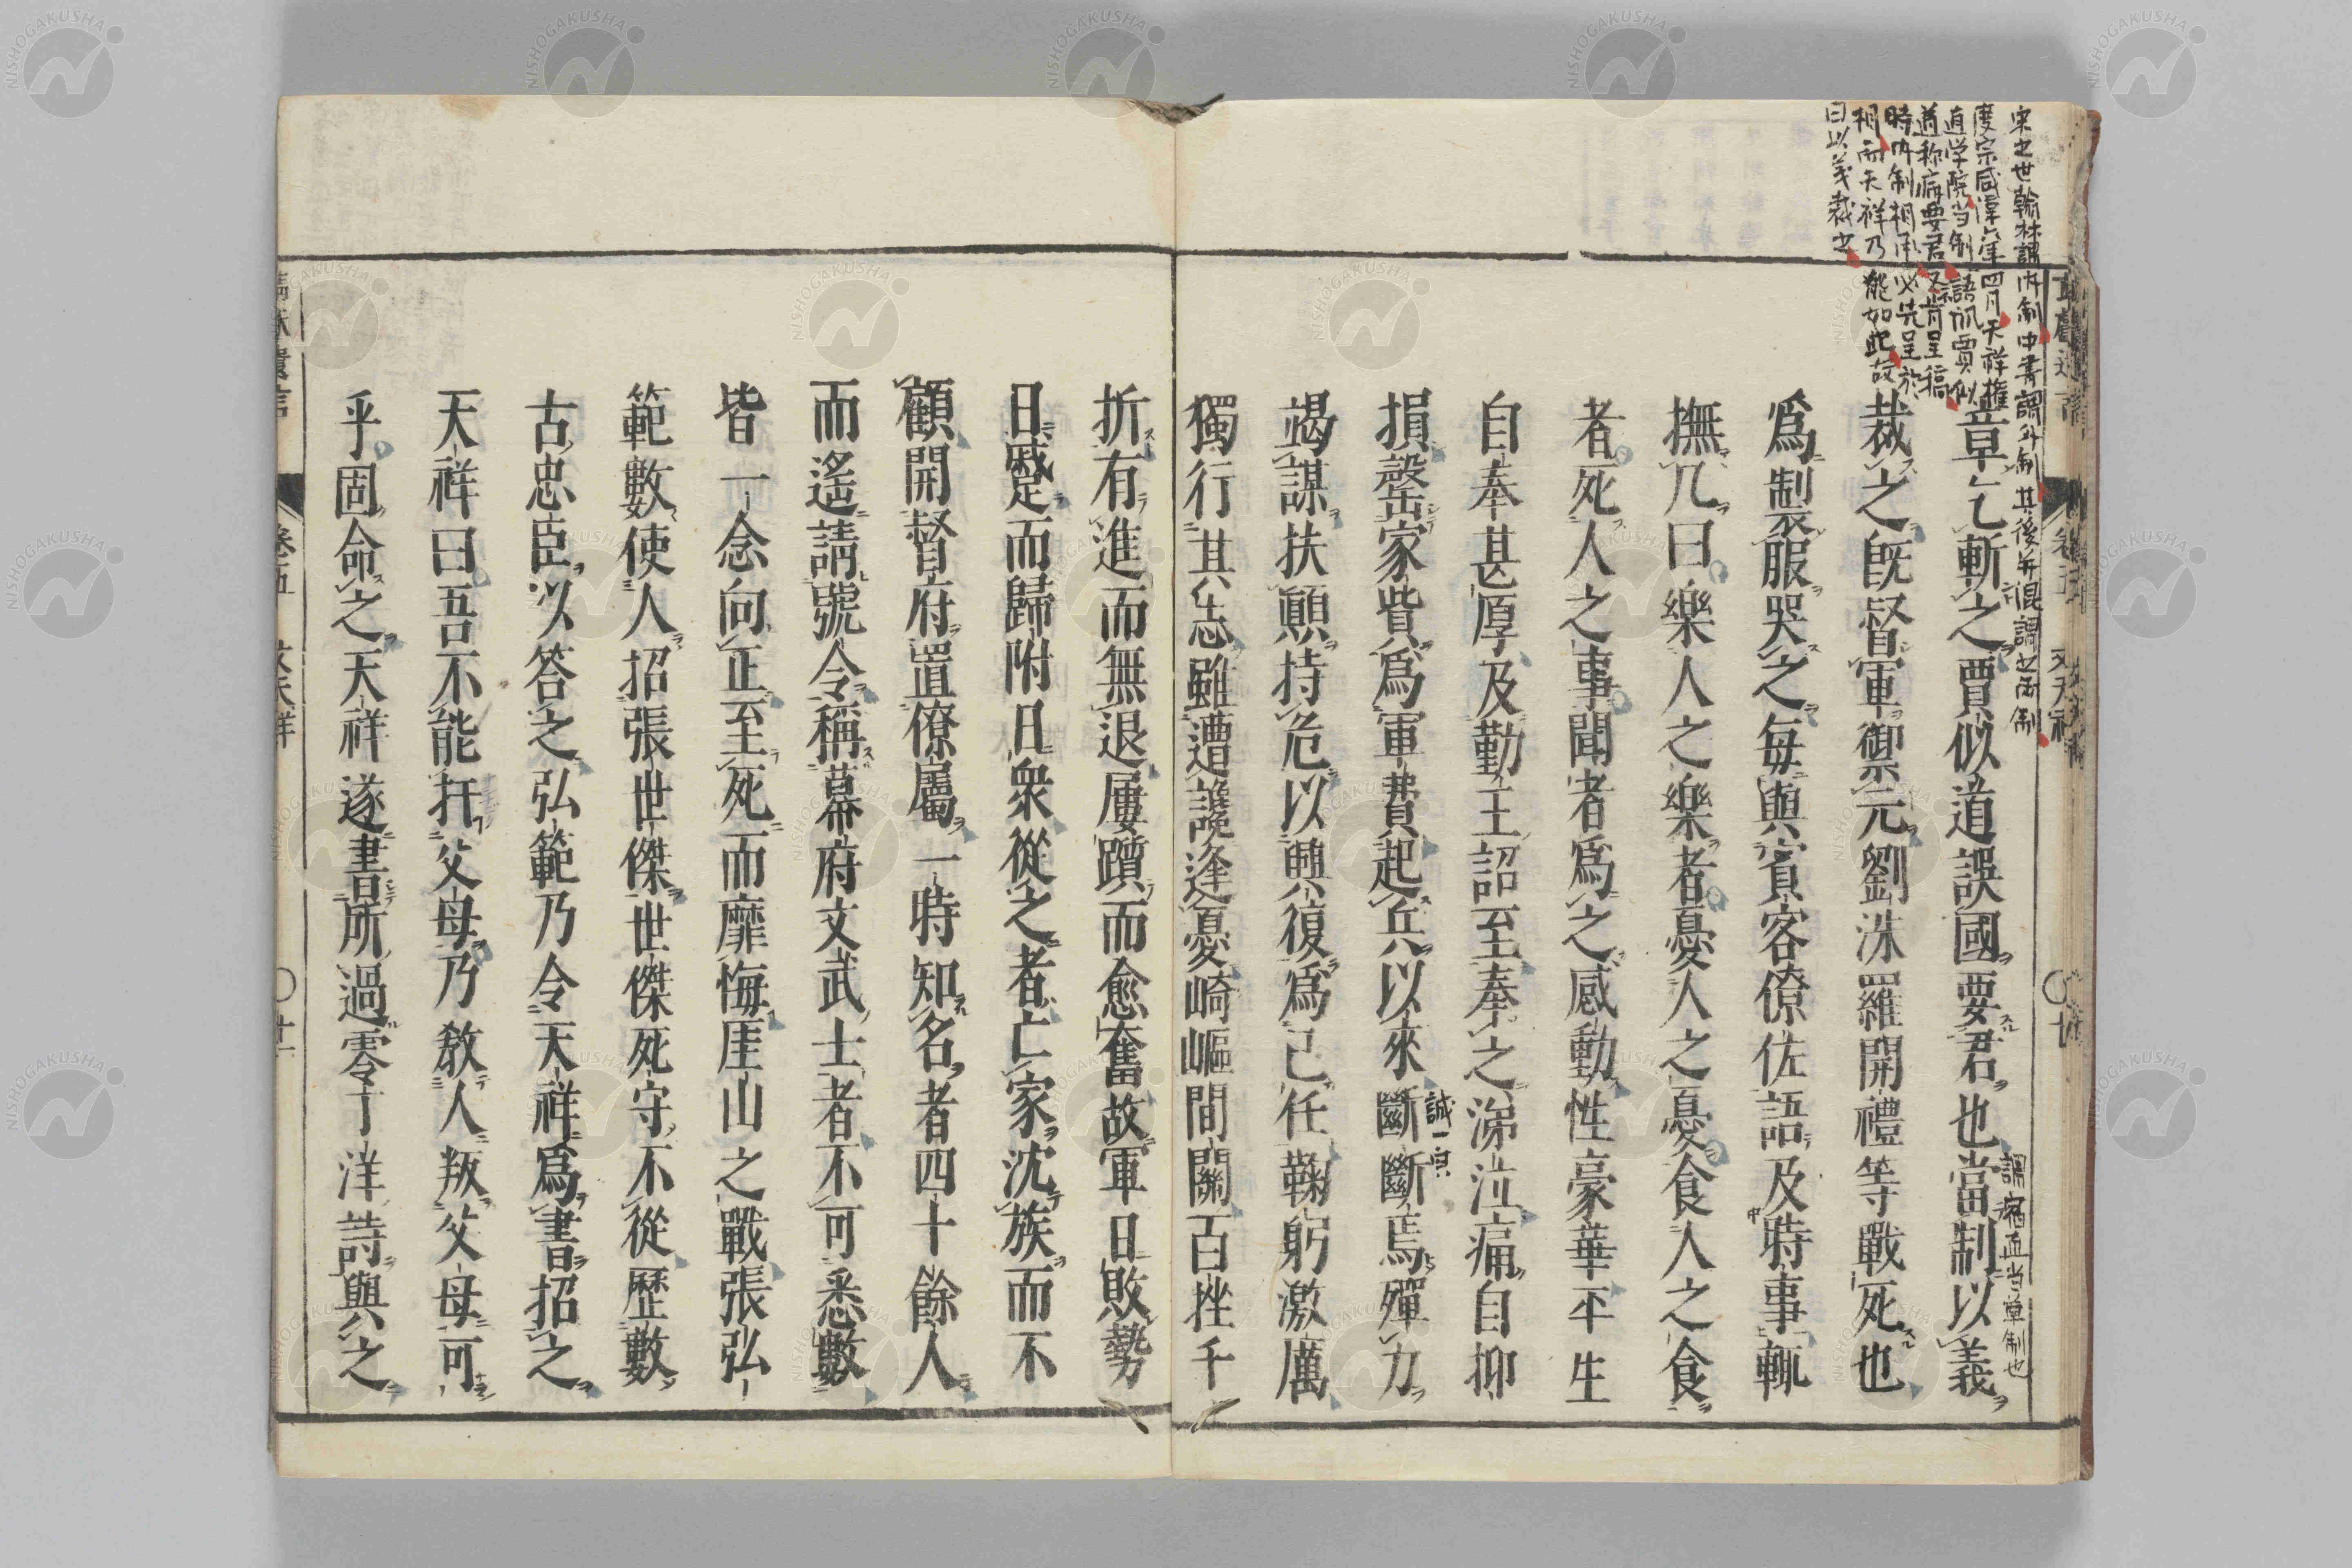 宋之世翰林謂内制中書謂外制其後并混謂之両制
度宗咸淳六年四月天祥権
直学院当制語訊賈似
道称病要君又肯呈稿
時内制相承必先呈於
相而天祥乃能如此故
曰以義裁之
卷五 文天祥
章乞斬之賈似道誤國要君也當制以義
謂宿直当草制也
裁之既督軍禦元劉洙羅開禮等戰死也
爲製服哭之每與賓客僚佐語及時事輒
撫几曰樂人之樂者憂人之憂食人之食
者死人之事聞者爲之感動性豪華平生
自奉甚厚及勤王詔至奉之涕泣痛自抑
損罄家貲爲軍費起兵以來斷斷焉殫力
誠一皃
竭謀扶顚持危以興復爲己任鞠躬激厲
獨行其志雖遭讒逢憂崎嶇間關百挫千
折有進而無退屢躓而愈奮故軍日敗勢
日蹙而歸附日衆從之者亡家沈族而不
顧開督府置僚屬一時知名者四十餘人
而遙請號令稱幕府文武士者不可悉數
皆一念向正至死而靡悔厓山之戰張弘
範數使人招張世傑世傑死守不從歷數
古忠臣以答之弘範乃令天祥爲書招之
天祥曰吾不能扞父母乃敎人叛父母可
乎固命之天祥遂書所過零丁洋詩與之
靖献遺言 卷五 文天祥 〇廿一
NISHOGAKUSHA